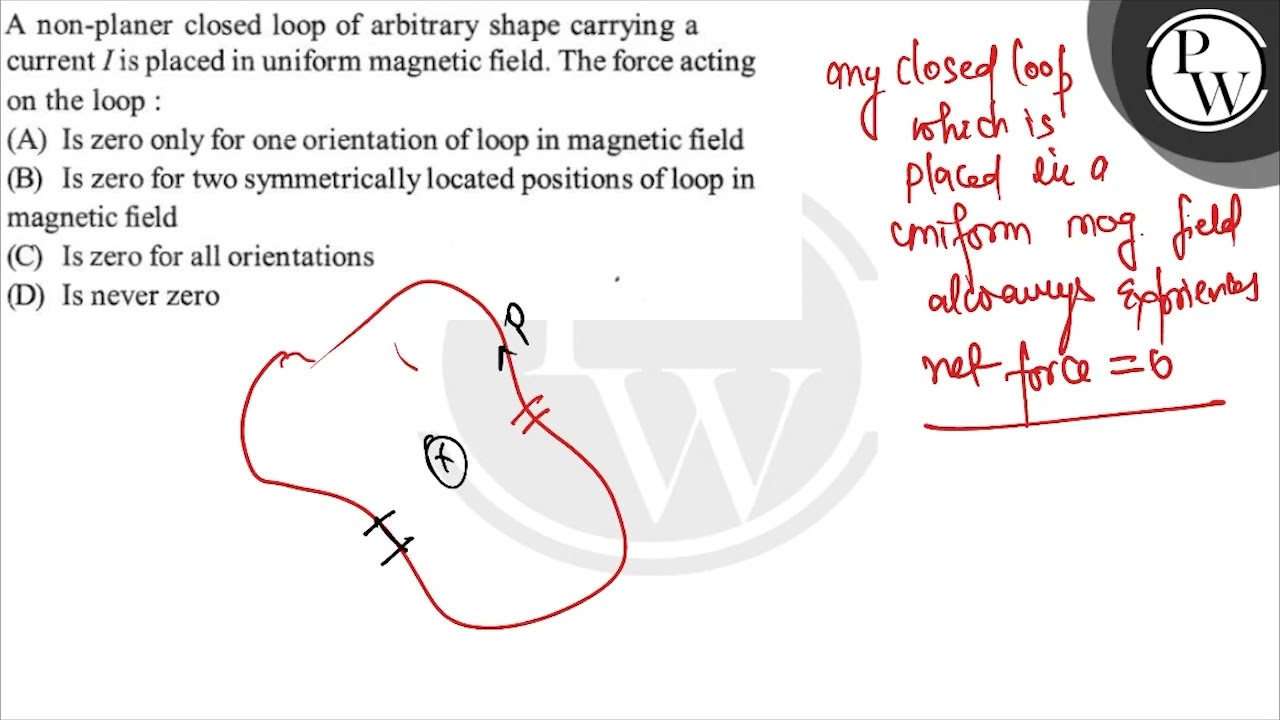 A non-planer closed loop of arbitrary shape carrying a
current I is placed in uniform magnetic field. The force acting
on the loop :
(A) Is zero only for one orientation of loop in magnetic field
(B) Is zero for two symmetrically located positions of loop in
magnetic field
(C) Is zero for all orientations
(D) Is never zero
any closed loop
which is
placed in a
uniform mag. field
always experiences
net force = 0
P
W
P
W